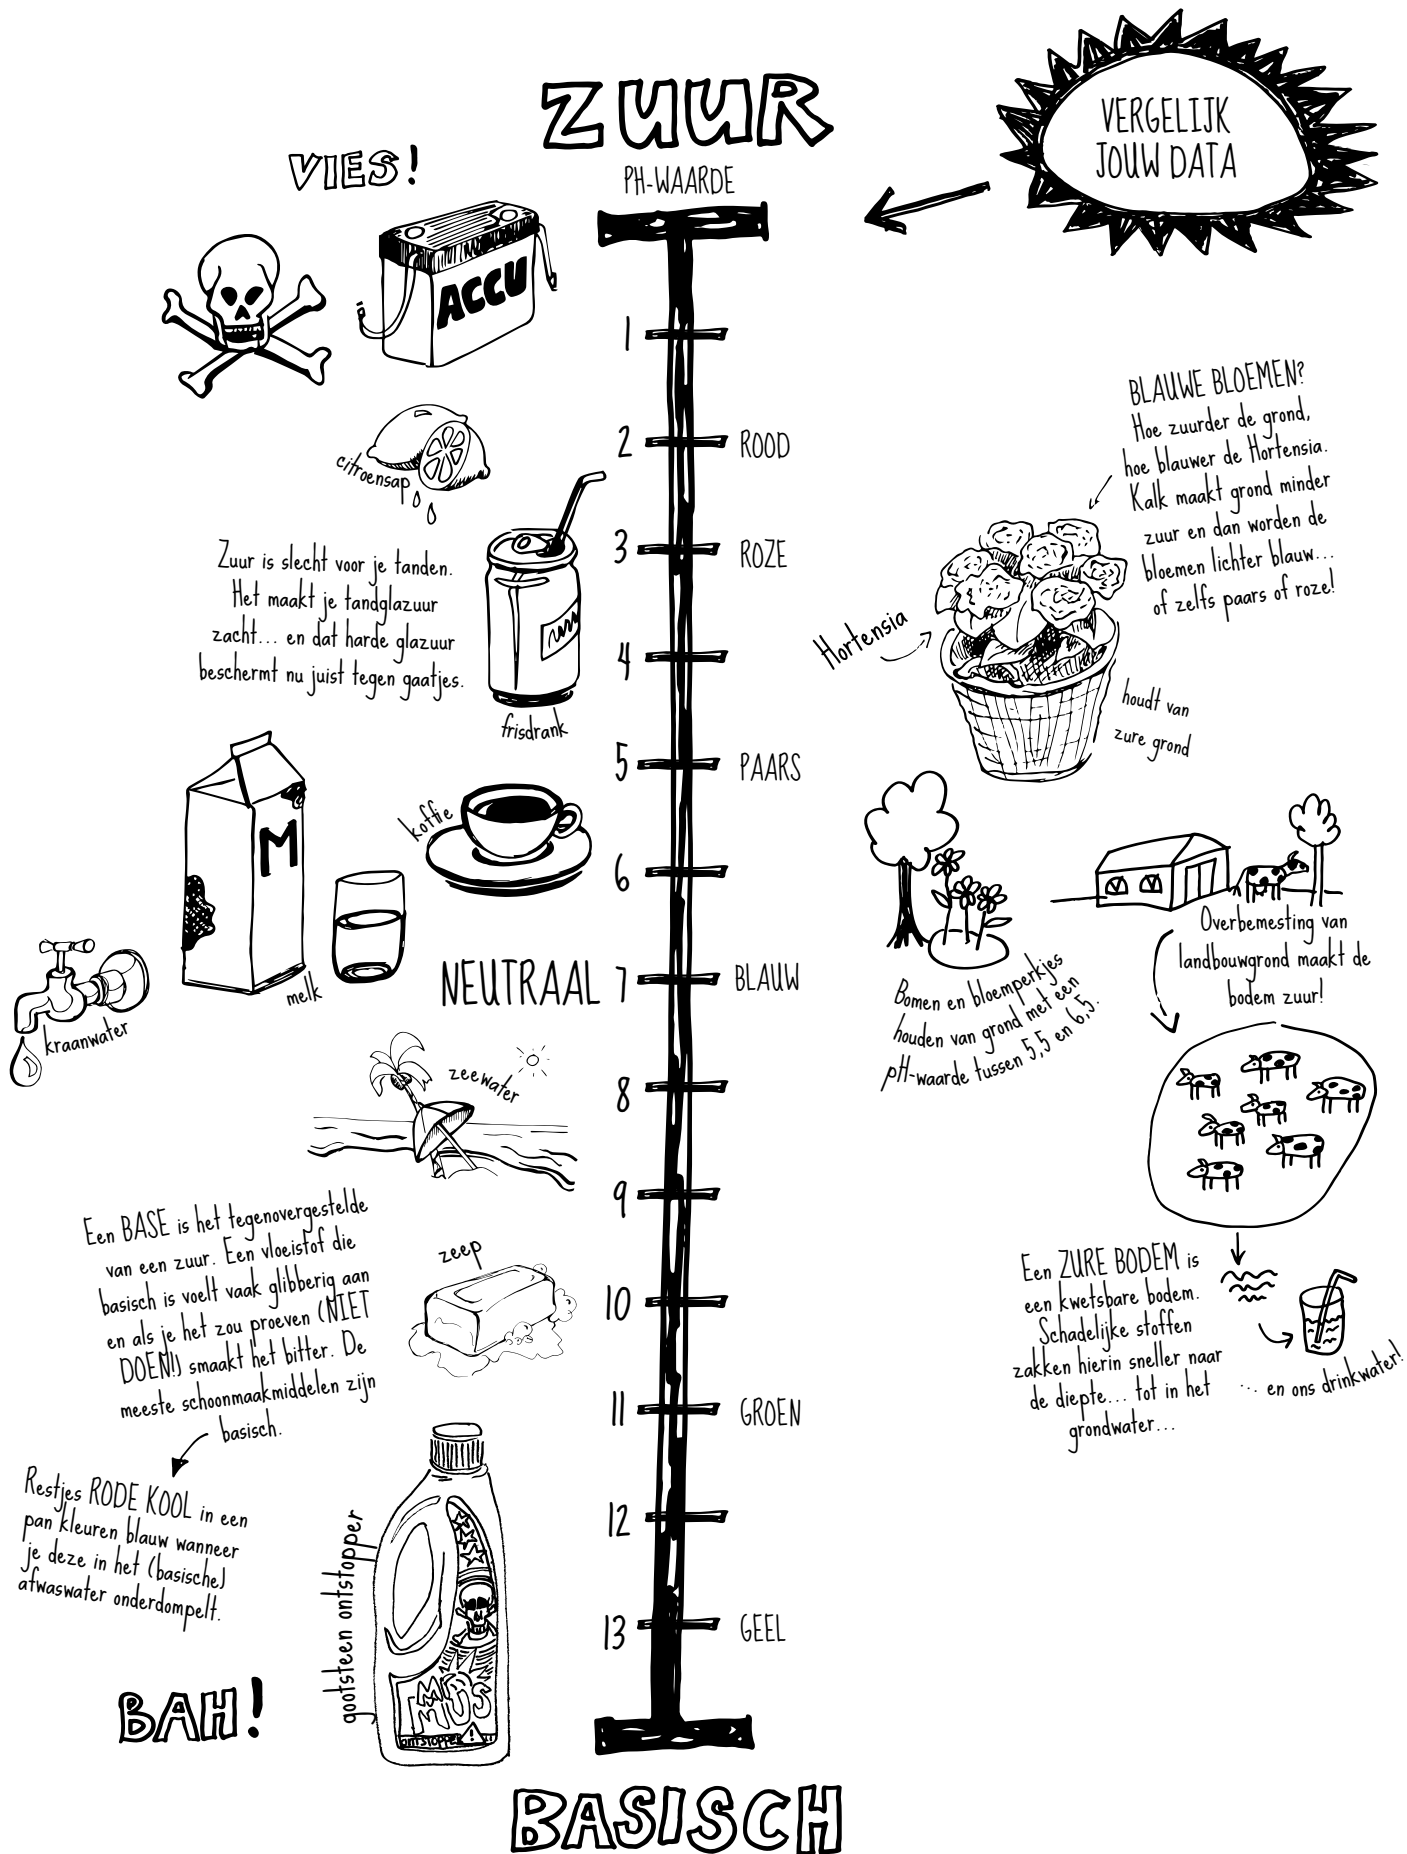 ZUUR
PH-WAARDE
VERGELIJK
JOUW DATA
VIES!
ACCU
1
2 ROOD
3 ROZE
4
5 PAARS
6
NEUTRAAL 7 BLAUW
8
9
10
11 GROEN
12
13 GEEL
citroensap
Zuur is slecht voor je tanden.
Het maakt je tandglazuur
zacht... en dat harde glazuur
beschermt nu juist tegen gaatjes.
frisdrank
koffie
M
melk
kraanwater
zeewater
Een BASE is het tegenovergestelde
van een zuur. Een vloeistof die
basisch is voelt vaak glibberig aan
en als je het zou proeven (NIET
DOEN!) smaakt het bitter. De
meeste schoonmaakmiddelen zijn
basisch.
zeep
Restjes RODE KOOL in een
pan kleuren blauw wanneer
je deze in het (basische)
afwaswater onderdompelt.
gootsteen ontstopper
MR
MUS
ONTSTOPPER
!
BAH!
BASISCH
BLAUWE BLOEMEN?
Hoe zuurder de grond,
hoe blauwer de Hortensia.
Kalk maakt grond minder
zuur en dan worden de
bloemen lichter blauw...
of zelfs paars of roze!
Hortensia
houdt van
zure grond
Bomen en bloemperkjes
houden van grond met een
pH-waarde tussen 5,5 en 6,5.
Overbemesting van
landbouwgrond maakt de
bodem zuur!
Een ZURE BODEM is
een kwetsbare bodem.
Schadelijke stoffen
zakken hierin sneller naar
de diepte... tot in het
grondwater...
... en ons drinkwater!